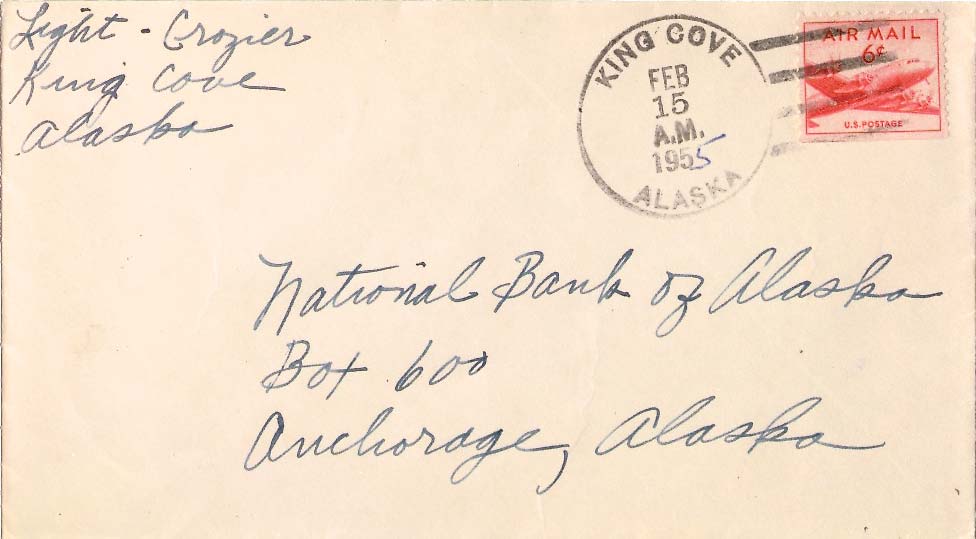 Light - Crozier
King Cove
Alaska
KING COVE
FEB
15
A.M.
1955
ALASKA
AIR MAIL
6¢
U.S. POSTAGE
National Bank of Alaska
Box 600
Anchorage, Alaska